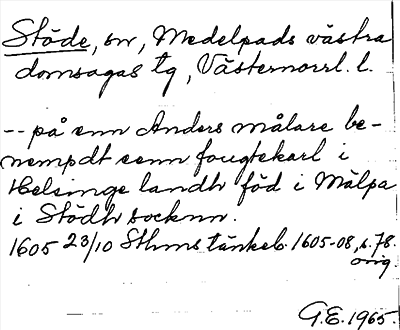 Stöde, sn, Medelpads västra
domsagas tg, Västernorrl. l.
-- på enn Anders målare be-
nempdt cenn fougtekarl i
Helsinge landh föd i Mälpa
i Stödh socknn.
1605 23/10 Sthms tänkeb. 1605-08, s. 78.
orig.
G.E. 1965.